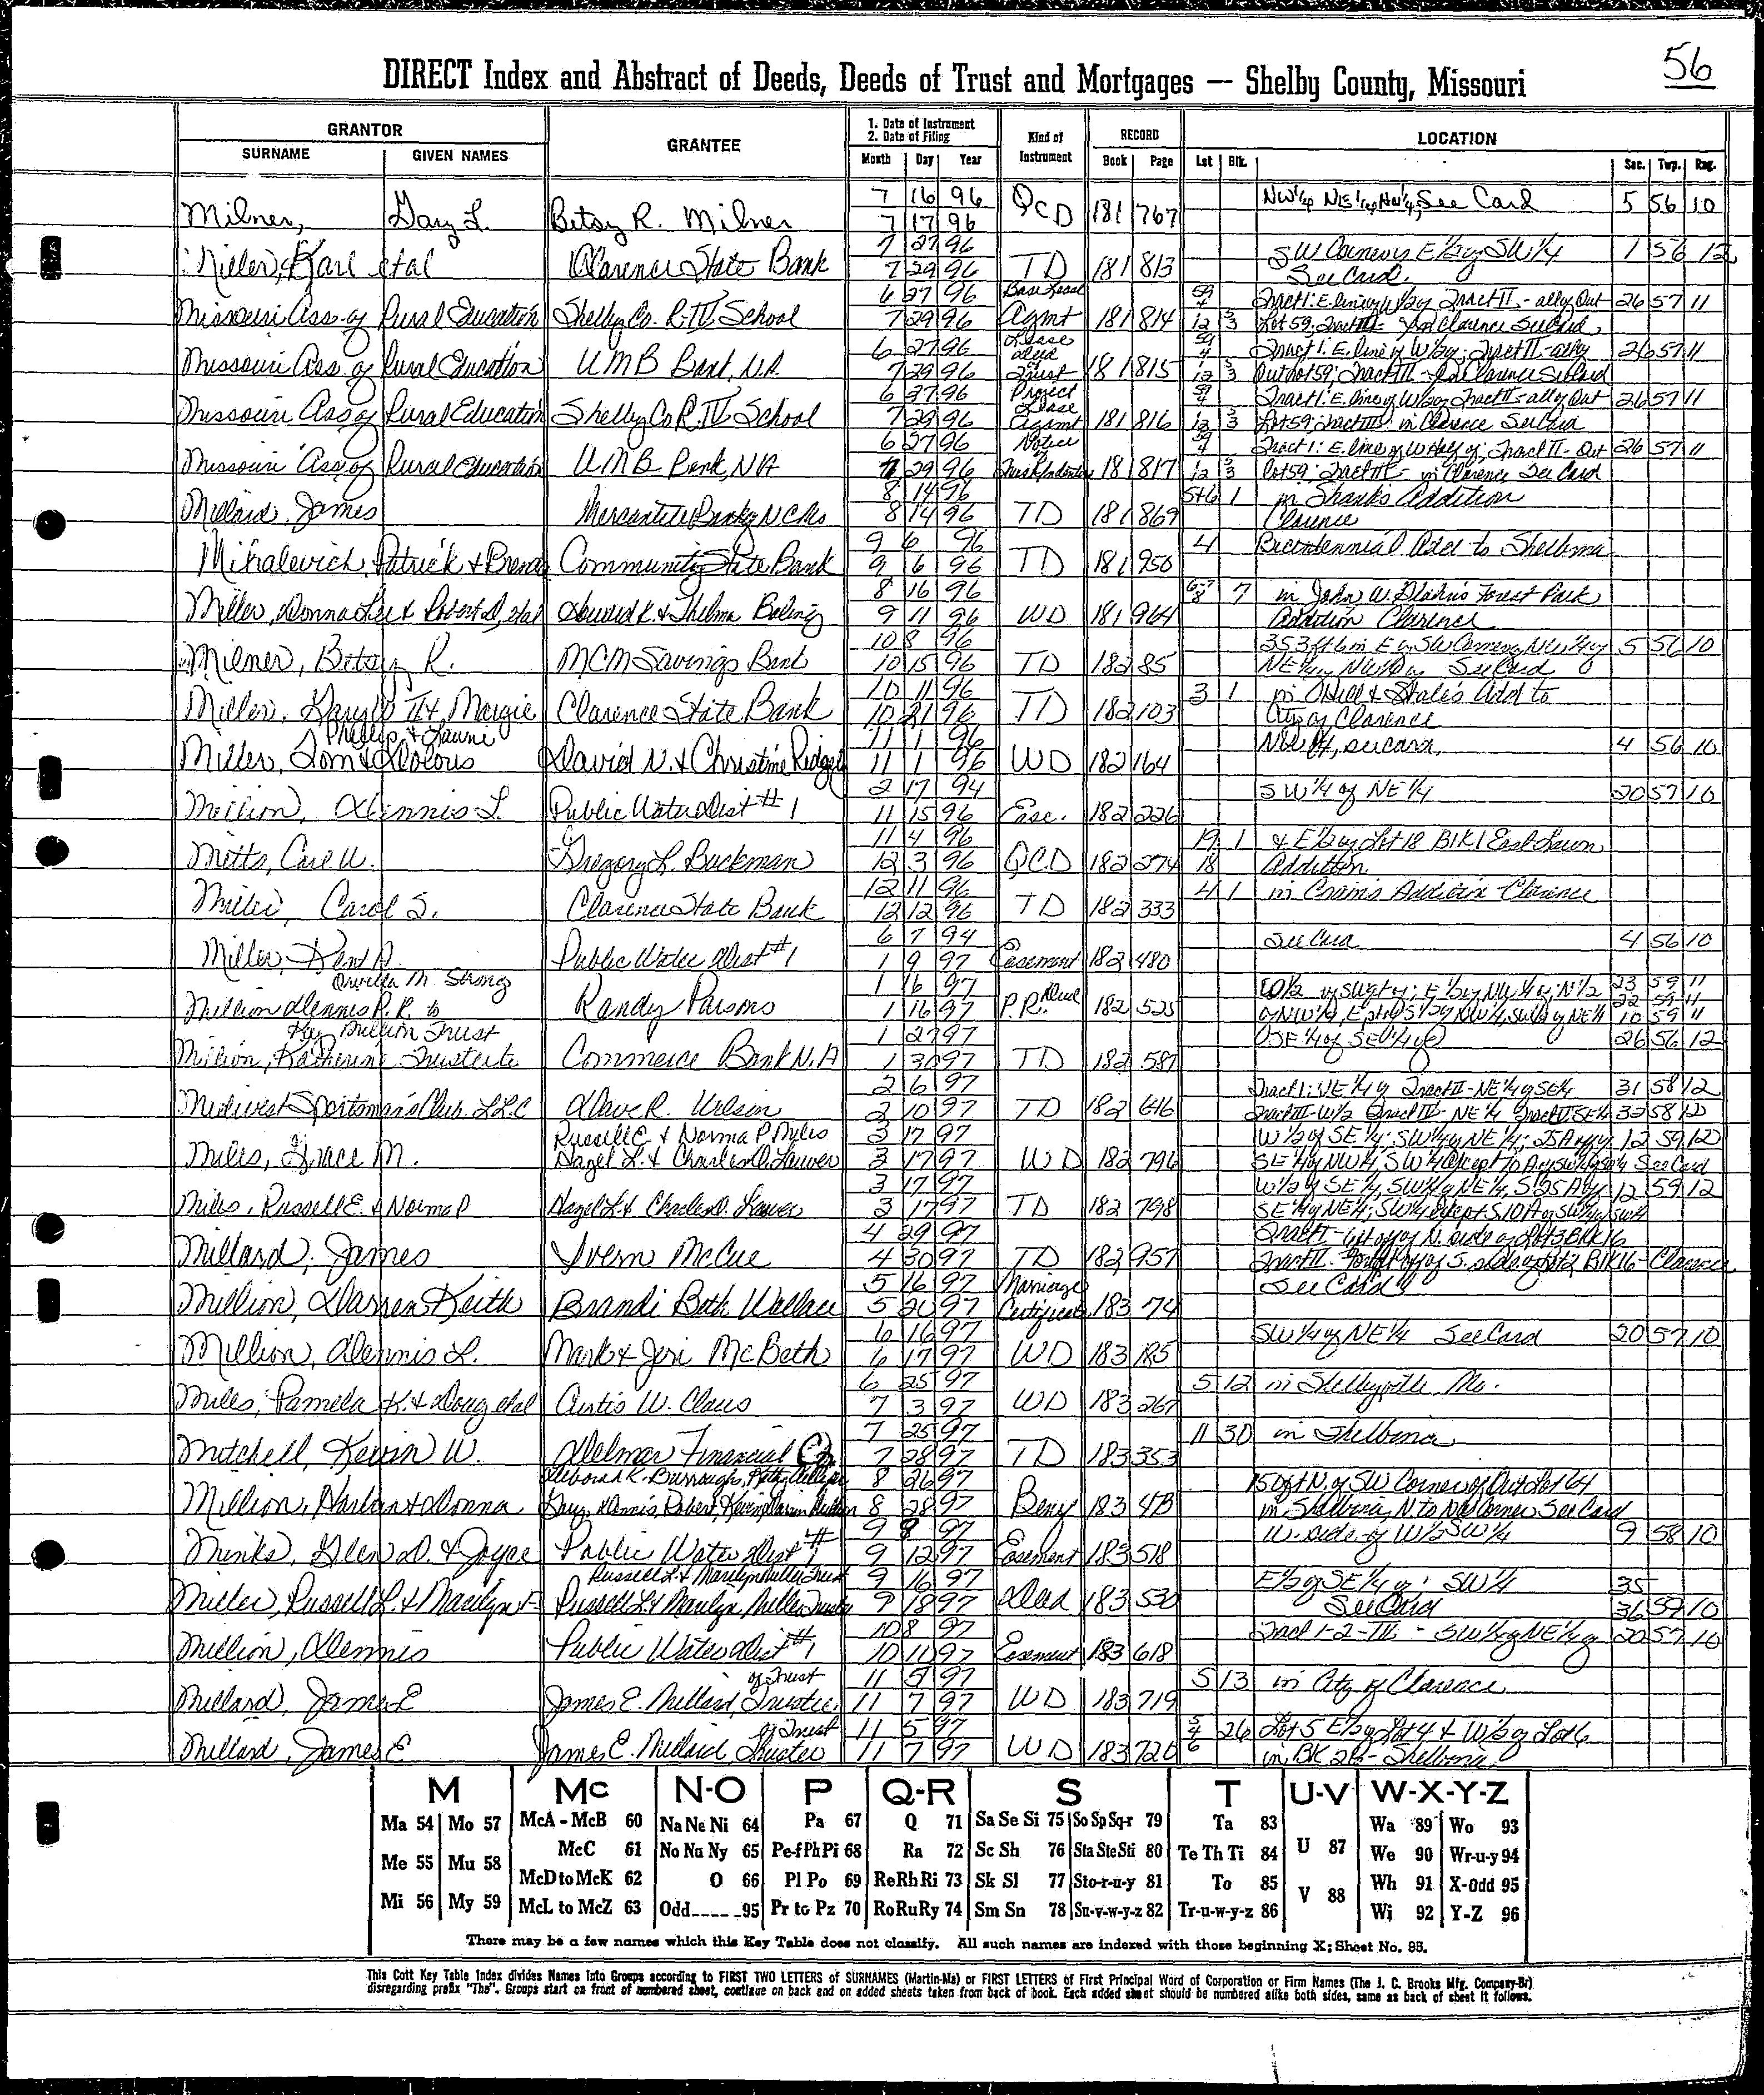 56
DIRECT Index and Abstract of Deeds, Deeds of Trust and Mortgages — Shelby County, Missouri
GRANTOR GRANTEE 1. Date of Instrument 2. Date of Filing Kind of Instrument RECORD LOCATION
SURNAME GIVEN NAMES Month Day Year Book Page Lot Blk. Sec. Twp. Rng.
7 16 96 NW¼ NE¼ NW¼, See Card 5 56 10
Milner, Gary L. Betsy R. Milner 7 17 96 QCD 181 767
7 27 96 SW Corner of E½ of SW¼ 1 56 12
Miller, Karl etal Clarence State Bank 7 29 96 TD 181 813 See Card
6 27 96 Base Lease 59 4 Tract I: E. line of W½ of Tract II - alley Out 26 57 11
Missouri Ass. of Rural Education Shelby Co. R-IV School 7 29 96 Agmt 181 814 12 3 Lot 59; Tract III - in Clarence See Card
6 27 96 Lease 59 4 Tract I: E. line of W½ of; Tract II - alley 26 57 11
Missouri Ass. of Rural Education UMB Bank, N.A. 7 29 96 Deed Trust 181 815 12 3 Out Lot 59; Tract III - in Clarence See Card
6 27 96 Project 59 4 Tract I: E. line of W½ of Tract II - alley Out 26 57 11
Missouri Ass of Rural Education Shelby Co R-IV School 7 29 96 Lease Agmt 181 816 12 3 Lot 59; Tract III - in Clarence See Card
6 27 96 Notice of 59 4 Tract I: E. line of W Half of; Tract II - Out 26 57 11
Missouri Ass. of Rural Education UMB Bank, N.A 7 29 96 Trust Indenture 181 817 12 3 Lot 59; Tract III - in Clarence See Card
8 14 96 5+6 1 in Shank's Addition
Millard, James Mercantile Bank of NC Mo 8 14 96 TD 181 869 Clarence
9 6 96 4 Bicentennial Add to Shelbina
Mihalevich, Patrick & Brenda Community State Bank 9 6 96 TD 181 950
8 16 96 6-7 8 7 in John W. Forest Park
Miller, Donna Lee & Robert D, etal Howard K. & Thelma 9 11 96 WD 181 964 Addition Clarence
10 8 96 353 ft 6 in E of SW Corner of NW¼ of 5 56 10
Milner, Betsy R. MCM Savings Bank 10 15 96 TD 182 85 NE¼ of NW¼ of See Card
10 11 96 3 1 in & Shale's Add to
Miller, Gary W III & Margie Clarence State Bank 10 21 96 TD 182 103 City of Clarence
Phillip & Laurie 11 1 96 NW¼, see card 4 56 10
Miller, Tom & Dolores David N. & Christine Ridgel 11 1 96 WD 182 164
2 17 94 SW¼ of NE¼ 20 57 10
Million, Dennis L. Public Water Dist #1 11 15 96 Ease. 182 226
11 4 96 19 1 & E½ of Lot 18 Blk 1 East Lawn
Mitts, Carl W. Gregory L. Buckman 12 3 96 QCD 182 274 18 Addition
12 11 96 4 1 in Crain's Addition Clarence
Miller, Carol S. Clarence State Bank 12 12 96 TD 182 333
6 7 94 See Card 4 56 10
Miller, Kent D. Public Water Dist #1 1 9 97 Easement 182 480
Orvilla M. Strong 1 16 97 W½ of SW¼ of; E½ of NW¼ of; N½ 23 59 11 22 59 11
Million Dennis P.R. to Randy Parsons 1 16 97 P.R. Deed 182 525 of NW¼, E pt of S½ of NW¼, SW¼ of NE¼ 10 59 11
Kay Million Trust 1 27 97 SE¼ of SE¼ of 26 56 12
Million, Katherine Trustee to Commerce Bank N.A 1 30 97 TD 182 587
2 6 97 Tract I: NE¼ of Tract II - NE¼ of SE¼ 31 58 12
Midwest Sportsman's Club LLC Dave R. Wilson 2 10 97 TD 182 646 Tract III - W½ Tract IV - NE¼ Tract V SE¼ 32 58 12
Russell E & Norma P Miles 3 17 97 W½ of SE¼; SW¼ of NE¼; 25 A of 12 59 12
Miles, Grace M. Hazel L. & Charles D. Lauver 3 17 97 WD 182 796 SE¼ of NW¼; SW¼ except 10 A of SW¼ of SW¼ See Card
3 17 97 W½ of SE¼, SW¼ of NE¼, S 25 A of 12 59 12
Miles, Russell E & Norma P Hazel L & Charles D. Lauver 3 17 97 TD 182 798 SE¼ of NE¼; SW¼ except S 10 A of SW¼ of SW¼
4 29 97 Tract I - 6 ft off of N. side of Lot 3 Blk 16
Millard, James Ivern McCue 4 30 97 TD 182 957 Tract II off of S. side of Lot 2 Blk 16 - Clarence
5 16 97 Marriage See Card
Million, Darren Keith Brandi Beth Wallace 5 20 97 Certificate 183 74
6 16 97 SW¼ of NE¼ See Card 20 57 10
Million, Dennis L. Mark & Jeri McBeth 6 17 97 WD 183 185
6 25 97 5 12 in Shelbyville, Mo.
Miles, Pamela K. & Doug etal Curtis W. Claus 7 3 97 WD 183 267
7 25 97 11 30 in Shelbina
Mitchell, Kevin W. Delmar Financial Co. 7 28 97 TD 183 353
Deborah K. Burroughs, 8 26 97 150 ft N. of SW Corner of Out Lot 64
Million, Harlan & Donna Gary, Dennis, Robert, Kevin, Darin Million 8 28 97 Beny 183 413 in Shelbina, N. to NW Corner See Card
9 8 97 W. side of W½ SW¼ 9 58 10
Minks, Glen D. & Joyce Public Water Dist #1 9 12 97 Easement 183 518
Russell L. & Marilyn Miller Trust 9 16 97 E½ of SE¼ of; SW¼ 35
Miller, Russell L. & Marilyn F. Russell L & Marilyn Miller Trustee 9 18 97 Deed 183 530 See Card 36 59 10
10 8 97 Tract 1-2-III - SW¼ of NE¼ of 20 57 10
Million, Dennis Public Water Dist #1 10 10 97 Easement 183 618
of Trust 11 5 97 5 13 in City of Clarence
Millard, James E James E. Millard, Trustee 11 7 97 WD 183 719
of Trust 11 5 97 5 4 6 26 Lot 5 E½ of Lot 4 & W½ of Lot 6
Millard, James E James E. Millard Trustee 11 7 97 WD 183 720 in BK 26 - Shelbina
M Mc N-O P Q-R S T U-V W-X-Y-Z
Ma 54 Mo 57 McA - McB 60 Na Ne Ni 64 Pa 67 Q 71 Sa Se Si 75 So Sp Sq-r 79 Ta 83 U 87 Wa 89 Wo 93
Me 55 Mu 58 McC 61 No Nu Ny 65 Pe-f Ph Pi 68 Ra 72 Sc Sh 76 Sta Ste Sti 80 Te Th Ti 84 We 90 Wr-u-y 94
McD to McK 62 O 66 Pl Po 69 Re Rh Ri 73 Sk Sl 77 Sto-r-u-y 81 To 85 V 88 Wh 91 X-Odd 95
Mi 56 My 59 McL to McZ 63 Odd ---- 95 Pr to Pz 70 Ro Ru Ry 74 Sm Sn 78 Su-v-w-y-z 82 Tr-u-w-y-z 86 Wi 92 Y-Z 96
There may be a few names which this Key Table does not classify. All such names are indexed with those beginning X; Sheet No. 95.
This Cott Key Table Index divides Names into Groups according to FIRST TWO LETTERS of SURNAMES (Martin-Ma) or FIRST LETTERS of First Principal Word of Corporation or Firm Names (The J. C. Brooks Mfg. Company-Br)
disregarding prefix "The". Groups start on front of numbered sheet, continue on back and on added sheets taken from back of book. Each added sheet should be numbered alike both sides, same as back of sheet it follows.